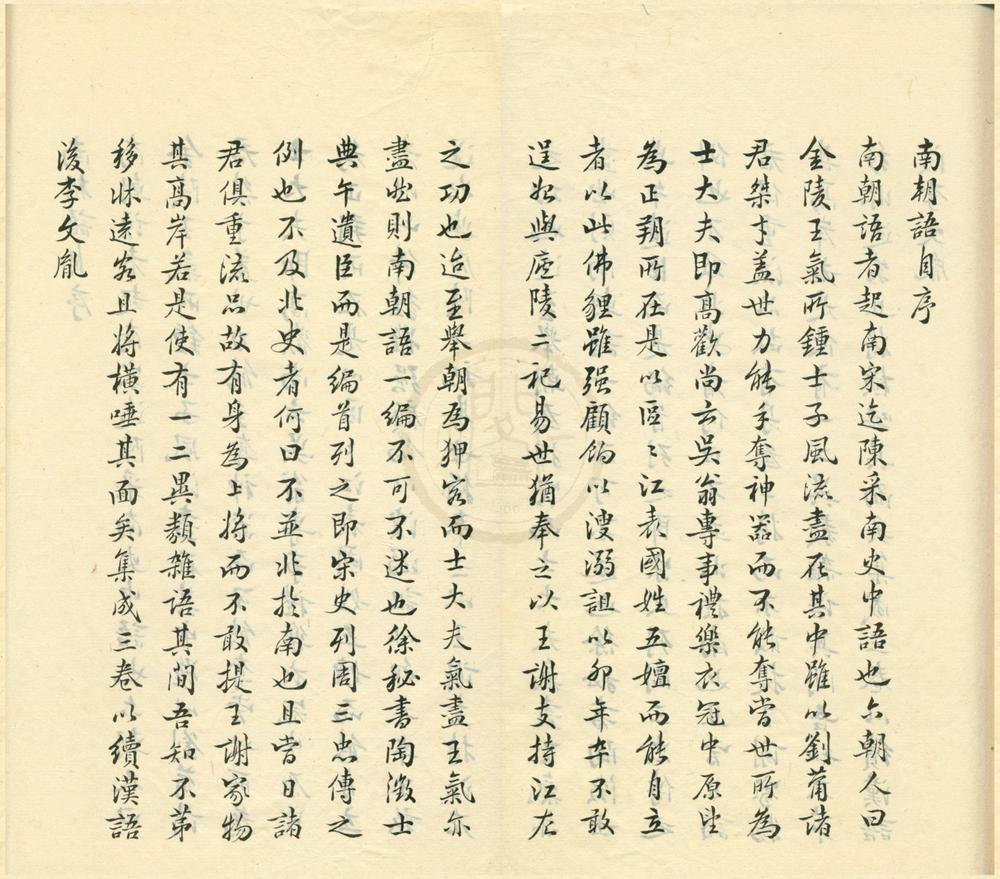 南朝語自序
南朝語者起南宋迄陳采南史中語也六朝人曰
金陵王氣所鍾士子風流盡在其中雖以劉蕭諸
君桀才蓋世力能手奪神器而不能奪當世所為
士大夫即高歡尚云吳翁專事禮樂衣冠中原望
為正朔所在是以區〻江表國姓五嬗而能自立
者以此佛貍雖强顧餉以溲溺詛以卯年卒不敢
逞
與廬陵二祀易世猶奉之以王謝支持江左
之功也迨至舉朝為狎客而士大夫氣盡王氣亦
盡然則南朝語一編不可不述也徐秘書陶徵士
典午遺臣而是編首列之即宋史列周三忠傳之
例也不及北史者何曰不並北於南也且當日諸
君俱重流品故有身為上將而不敢提王謝家物
其高岸若是使有一二異類雜語其間吾知不第
移牀遠客且將橫唾其面矣集成三卷以續漢語
後李文胤